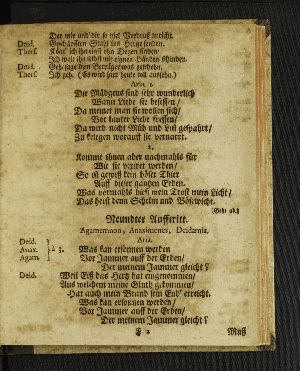 Der mir und dir so viel Verdruß anricht.
Deid. Geschärfften Stahl ins Hertze senden.
Thers. Könt' ich ihn einst ohn Degen finden/
Ich wolt ihn selbst mit eignen Händen schinden.
Deid. Geh/sage dem Betrüger was geschehn.
Thers. Ich geh. (Es wird hier heute toll aussehn.)
Aria. 1.
Die Mädgens sind sehr wunderlich
Wann Liebe sie besessen/
Da meinet man sie wollen sich/
Vor lauter Liebe fressen/
Da wird nicht Müh und List gespahrt/
Zu kriegen worauff sie vernarrt.
2.
Kommt ihnen aber nachmahls für
Wie sie vexiret werden/
So ist gewiß kein böser Thier
Auff dieser gantzen Erden.
Was vormahls hieß mein Trost mein Licht/
Das heist denn Schelm und Bösewicht.
(Geht ab.)
Neundter Aufftritt.
Agamemnon, Anaximenes, Deidamia.
Aria.
Deid. Anax. Agam. à 3. Was kan ersonnen werden
Vor Jammer auff der Erden/
Der meinem Jammer gleicht?
Deid. Weil Eiß das Hertz hat eingenommen/
Aus welchem meine Gluth gekommen/
Hat auch mein Brand sein End' erreicht.
Was kan ersonnen werden/
Vor Jammer auff der Erden/
Der meinem Jammer gleicht?
F 2 Muß